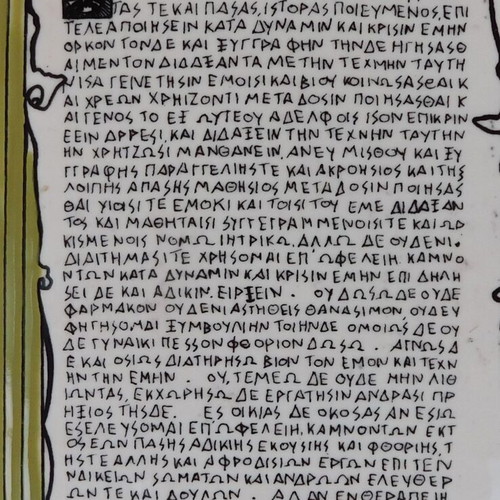 ΤΑΣ ΤΕ ΚΑΙ ΠΑΣΑΣ, ΙΣΤΟΡΑΣ ΠΟΙΕΥΜΕΝΟΣ, ΕΠΙ
ΤΕΛΕΑ ΠΟΙΗΣΕΙΝ ΚΑΤΑ ΔΥΝΑΜΙΝ ΚΑΙ ΚΡΙΣΙΝ ΕΜΗΝ
ΟΡΚΟΝ ΤΟΝΔΕ ΚΑΙ ΞΥΓΓΡΑΦΗΝ ΤΗΝΔΕ ΗΓΗΣΑΣΘ
ΑΙ ΜΕΝ ΤΟΝ ΔΙΔΑΞΑΝΤΑ ΜΕ ΤΗΝ ΤΕΧΜΗΝ ΤΑΥΤΗ
ΝΙΣΑ ΓΕΝΕΤΗΣΙΝ ΕΜΟΙΣΙ ΚΑΙ ΒΙΟΥ ΚΟΙΝΩΣΑΣΘΑΙ Κ
ΑΙ ΧΡΕΩΝ ΧΡΗΙΖΟΝΤΙ ΜΕΤΑΔΟΣΙΝ ΠΟΙΗΣΑΣΘΑΙ Κ
ΑΙ ΓΕΝΟΣ ΤΟ ΕΞ ΩΥΤΕΟΥ ΑΔΕΛΦΟΙΣ ΙΣΟΝ ΕΠΙΚΡΙΝ
ΕΕΙΝ ΑΡΡΕΣΙ, ΚΑΙ ΔΙΔΑΞΕΙΝ ΤΗΝ ΤΕΧΝΗΝ ΤΑΥΤΗΝ
ΗΝ ΧΡΗΤΖΩΣΙ ΜΑΝΘΑΝΕΙΝ, ΑΝΕΥ ΜΙΣΘΟΥ ΚΑΙ ΞΥ
ΓΓΡΑΦΗΣ ΠΑΡΑΓΓΕΛΙΗΣ ΤΕ ΚΑΙ ΑΚΡΟΗΣΙΟΣ ΚΑΙ ΤΗΣ
ΛΟΙΠΗΣ ΑΠΑΣΗΣ ΜΑΘΗΣΙΟΣ ΜΕΤΑΔΟΣΙΝ ΠΟΙΗΣΑΣ
ΘΑΙ ΥΙΟΙΣΙ ΤΕ ΕΜΟΚΙ ΚΑΙ ΤΟΙΣΙ ΤΟΥ ΕΜΕ ΔΙΔΑΞΑΝ
ΤΟΣ ΚΑΙ ΜΑΘΗΤΑΙΣΙ ΣΥΓΓΕΓΡΑΜΜΕΝΟΙΣΙ ΤΕ ΚΑΙ ΩΡ
ΚΙΣΜΕΝΟΙΣ ΝΟΜΩ ΙΗΤΡΙΚΩ, ΑΛΛΩ ΔΕ ΟΥΔΕΝΙ.
ΔΙΑΙΤΗΜΑΣΙ ΤΕ ΧΡΗΣΟΜΑΙ ΕΠ' ΩΦΕΛΕΙΗ ΚΑΜΝΟ
ΝΤΩΝ ΚΑΤΑ ΔΥΝΑΜΙΝ ΚΑΙ ΚΡΙΣΙΝ ΕΜΗΝ ΕΠΙ ΔΗΛΗ
ΣΕΙ ΔΕ ΚΑΙ ΑΔΙΚΙΗ, ΕΙΡΞΕΙΝ. ΟΥ ΔΩΣΩ ΔΕ ΟΥΔΕ
ΦΑΡΜΑΚΟΝ ΟΥΔΕΝΙ ΑΙΤΗΘΕΙΣ ΘΑΝΑΣΙΜΟΝ, ΟΥΔΕ Υ
ΦΗΓΗΣΟΜΑΙ ΞΥΜΒΟΥΛΙΗΝ ΤΟΙΗΝΔΕ ΟΜΟΙΩΣ ΔΕ ΟΥ
ΔΕ ΓΥΝΑΙΚΙ ΠΕΣΣΟΝ ΦΘΟΡΙΟΝ ΔΩΣΩ. ΑΓΝΩΣ Δ
Ε ΚΑΙ ΟΣΙΩΣ ΔΙΑΤΗΡΗΣΩ ΒΙΟΝ ΤΟΝ ΕΜΟΝ ΚΑΙ ΤΕΧΝ
ΗΝ ΤΗΝ ΕΜΗΝ. ΟΥ, ΤΕΜΕΩ ΔΕ ΟΥΔΕ ΜΗΝ ΛΙΘ
ΙΩΝΤΑΣ, ΕΚΧΩΡΗΣΩ ΔΕ ΕΡΓΑΤΗΣΙΝ ΑΝΔΡΑΣΙ ΠΡ
ΗΞΙΟΣ ΤΗΣΔΕ. ΕΣ ΟΙΚΙΑΣ ΔΕ ΟΚΟΣΑΣ ΑΝ ΕΣΙΩ
ΕΣΕΛΕΥΣΟΜΑΙ ΕΠ' ΩΦΕΛΕΙΗ, ΚΑΜΝΟΝΤΩΝ ΕΚΤ
ΟΣ ΕΩΝ ΠΑΣΗΣ ΑΔΙΚΗΣ ΕΚΟΥΣΙΗΣ ΚΑΙ ΦΘΟΡΙΗΣ, Τ
ΗΣ ΤΕ ΑΛΛΗΣ ΚΑΙ ΑΦΡΟΔΙΣΙΩΝ ΕΡΓΩΝ ΕΠΙ ΤΕ ΓΥ
ΝΑΙΚΕΙΩΝ ΣΩΜΑΤΩΝ ΚΑΙ ΑΝΔΡΩΩΝ ΕΛΕΥΘΕΡ
ΩΝ ΤΕ ΚΑΙ ΔΟΥΛΩΝ. Α Δ ΑΝ ΕΝΘΕΡΑΠΕΙΗ